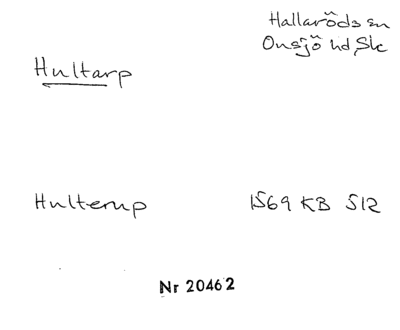 Hallaröds sn
Onsjö hd Sk
Hultarp
Hulterup 1569 KB 512
Nr 20462